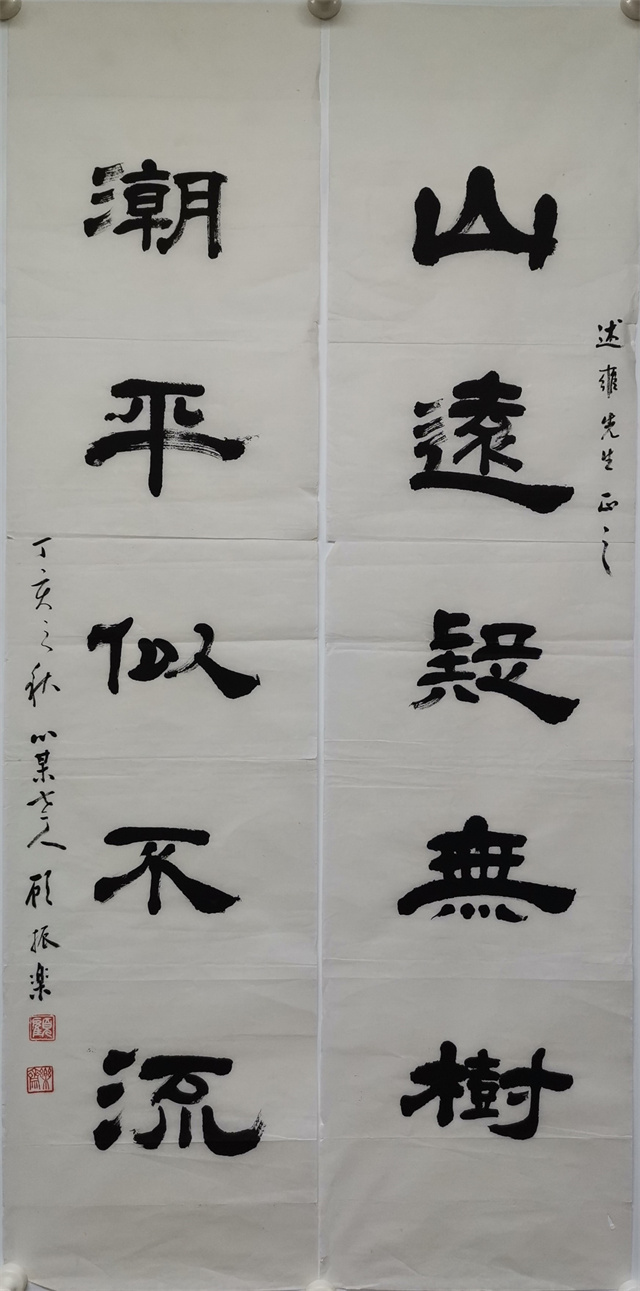 山遠疑無樹
述雍先生正之
潮平似不流
丁亥之秋心某老人顾振樂